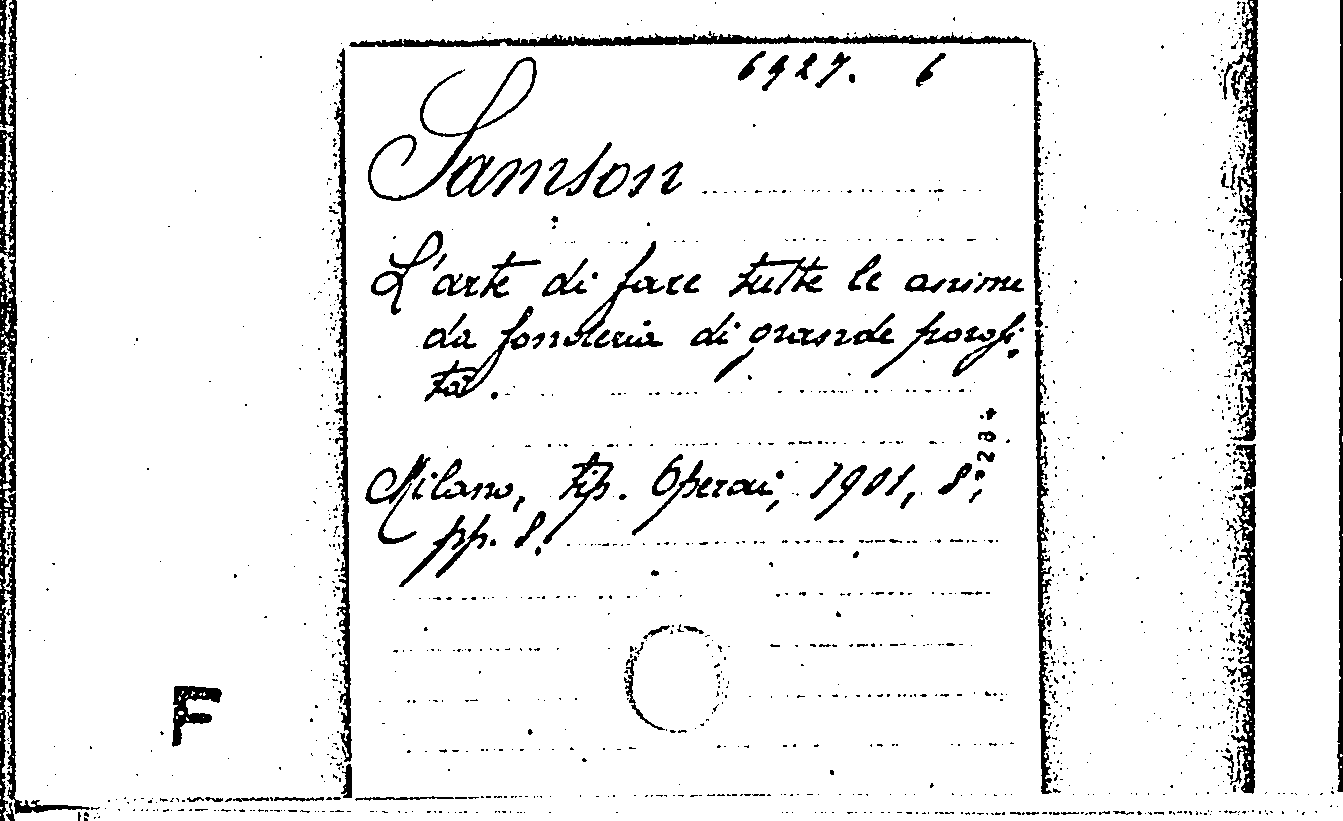 6927. 6
Samson
L'arte di fare tutte le anime
da fonderia di grande porosi-
tà.
Milano, tip. Operai, 1901, 8°,
pp. 8.
F